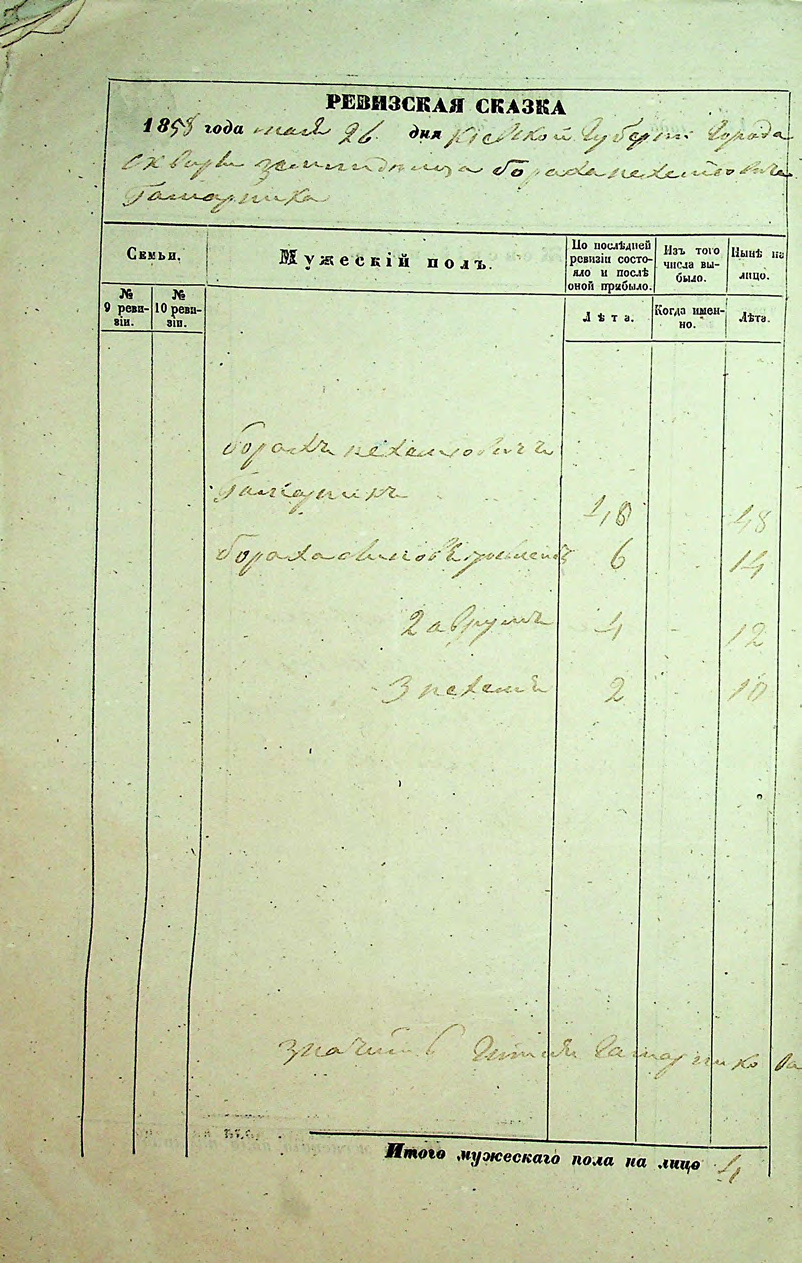 РЕВИЗСКАЯ СКАЗКА
1858 года мая 26 дня Киевской Губернии Города
Сквиры землидельца бораха нехемовича
Гамарника
Семьи.
Мужескій полъ.
По послѣдней ревизіи состояло и послѣ оной прибыло.
Изъ того числа выбыло.
Нынѣ на лицо.
№ 9 ревизіи.
№ 10 ревизіи.
Лѣта.
Когда именно.
Лѣта.
борахъ нехемовичъ
Гамарникъ 48 48
бораха сынов 6 14
2 аврумъ 4 12
3 нехемъ 2 10
значит Гамарникова
Итого мужескаго пола на лицо 4